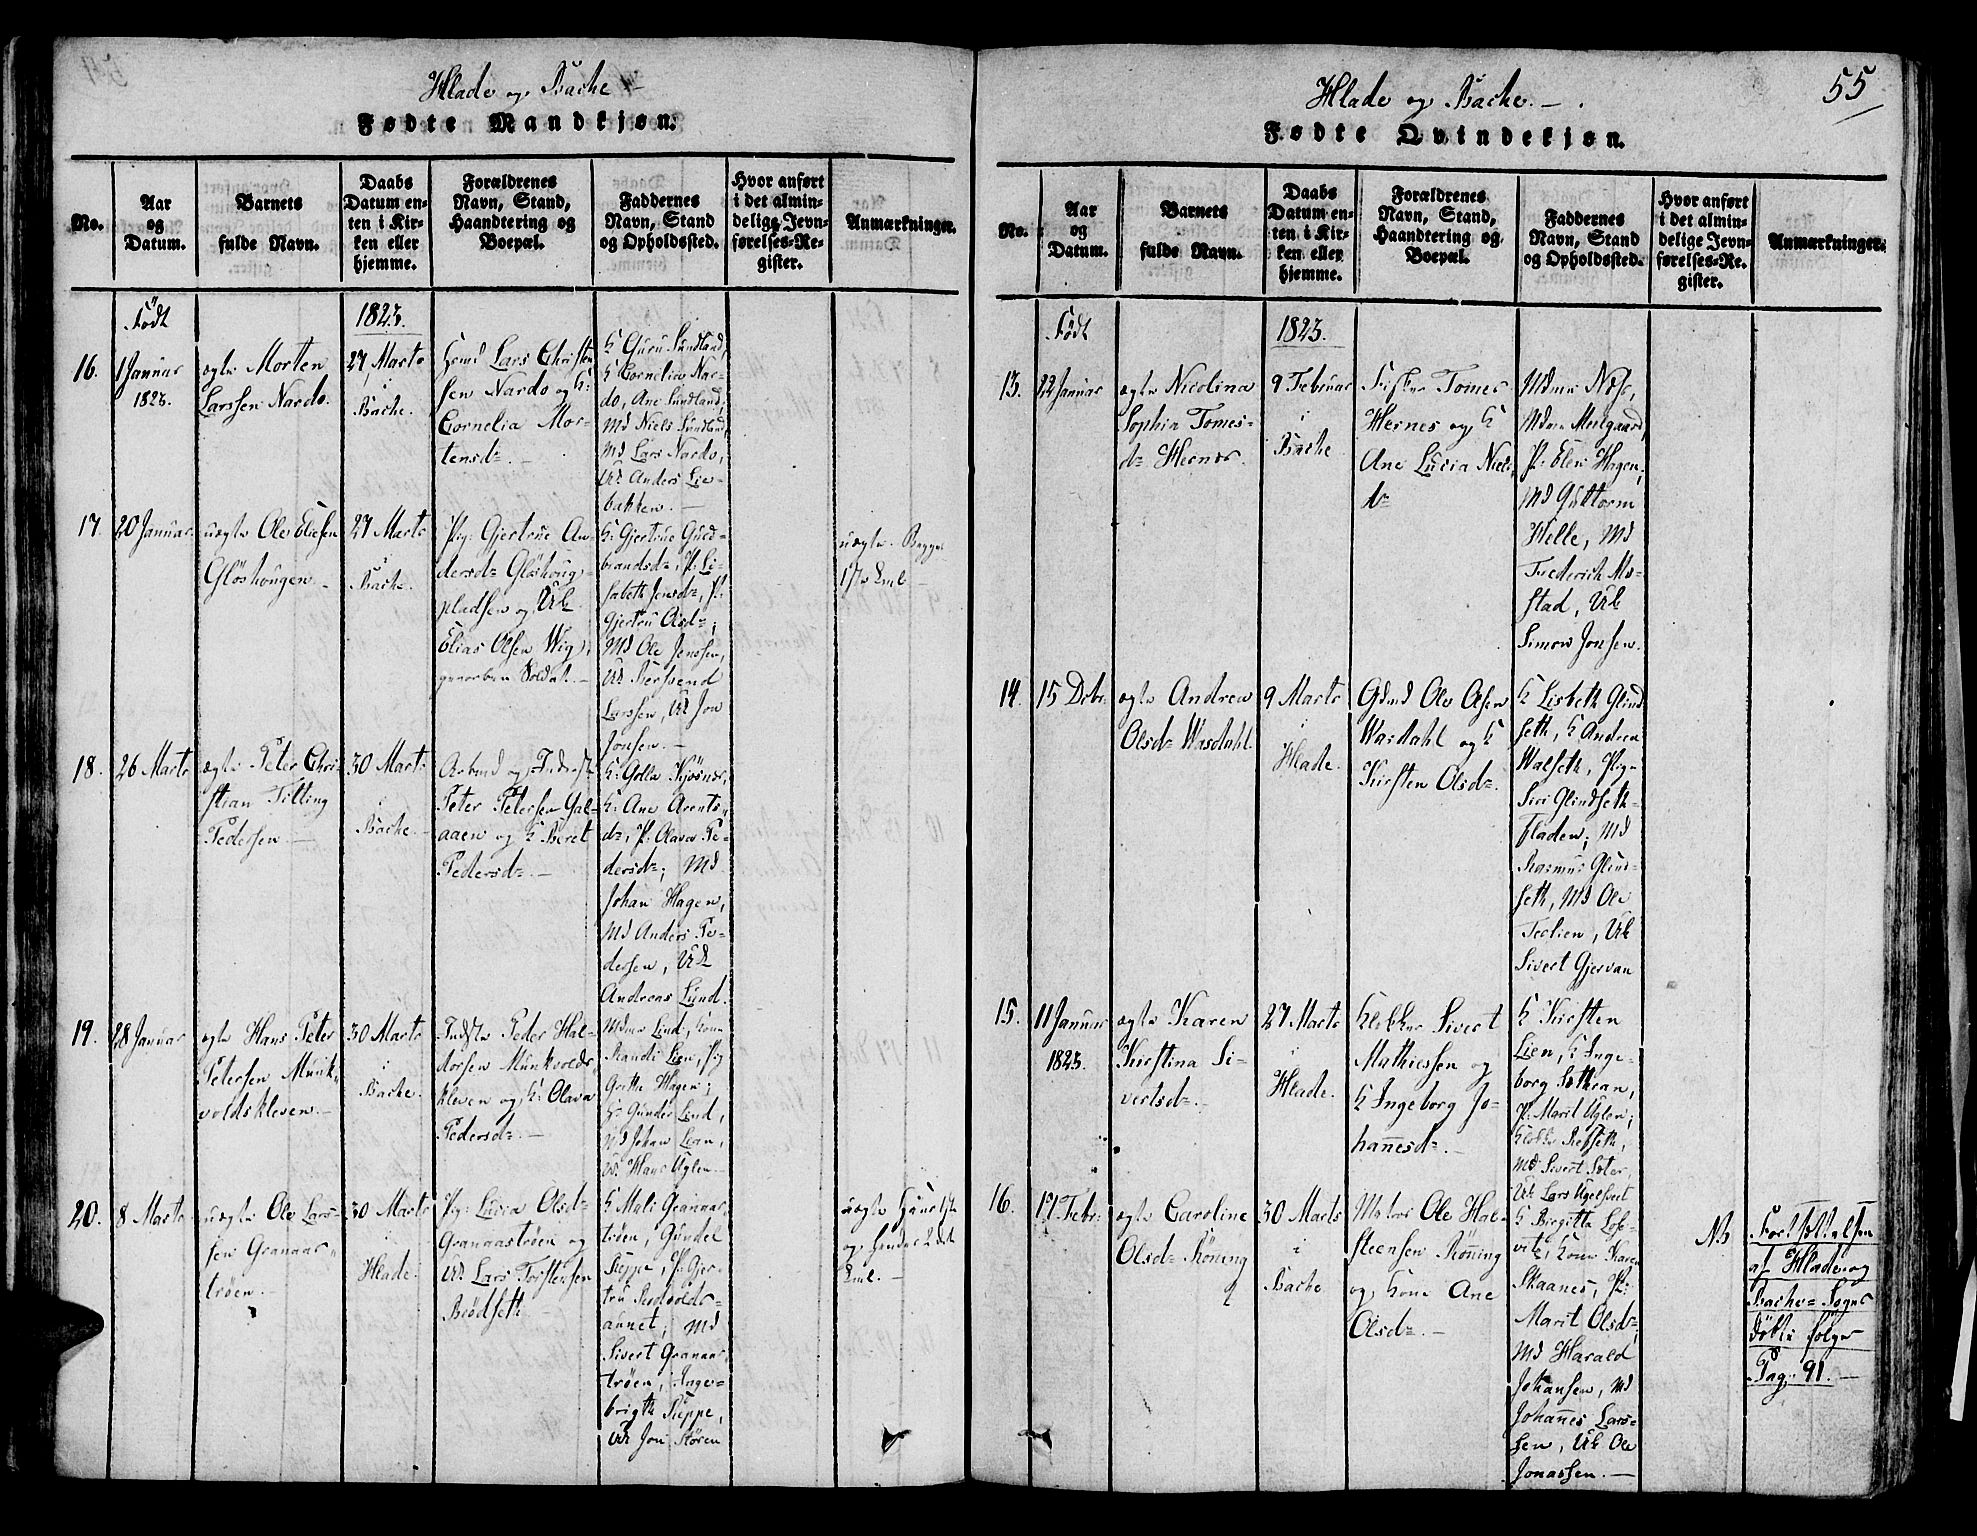 Hlade og Bache
Fødte Mandkjøn.
No.
Aar
og
Datum.
Barnets
fulde Navn.
Daabs
Datum en-
ten i Kir-
ken eller
hjemme.
Forældrenes
Navn, Stand,
Haandtering og
Boepæl.
Faddernes
Navn, Stand
og Opholdssted.
Hvor anført
i det almin-
delige Jevn-
førelses-Re-
gister.
Anmærkninger.
Født
1823.
16.
1 Januar
1823.
ægte Morten
Larssen Nardo.
27 Marts
i
Bache.
Lars Christen
sen Nardo og K:
Cornelia Mor-
tensd=
K Guru Sundland,
K Cornelia Nar-
do, Ane Sundland,
Md Niels Sundland,
Md Lars Nardo,
Uk Anders Lie-
bakken.
17
20 Januar.
uægte Ole Eliesen
Gløshougen
27 Marts
i
Bache.
Pig: Gjertrue An
dersd= Gløshoug-
pladsen og Uk
Elias Olsen Wig,
geworben Soldat.
K: Gjertrue Gurd-
brandsd=, P: Li-
sabeth Jensd=, P:
Gjertru Olsd=,
Md Ole Jenssen,
Uk Bersvend
Larssen, Uk Jon
Jonsen.
uægte. Begges
17de Lml
18.
26 Marts
ægte Peter Chri-
stian Tilting
Pedersen.
30 Marts
i
Bache.
Arbmd og Inderst
Peter Petersen Gal-
aaen og K Beret
Pedersd=.
K: Golla
K: Ane Arents-
d=, P: Olava Pe-
dersd=; Md
Johan Hagen,
Md Anders Pe-
dersen, Uk
Andreas Lund.
19.
28 Januar
ægte Hans Peter
Petersen Munk-
voldskleven.
30 Marts
i
Bache.
Indste Peder Hal-
dorsen Munkvolds-
kleven og K: Olava
Pedersd=.
Mdme Lind, Kone
Randi Lien, Pig
Grethe Hagen;
Hr Gunder Lind,
Md Johan Lian,
Uk. Hans Uglen.
20.
8 Marts
uægte Ole Lars-
sen Granaas
trøen.
30 Marts
i
Hlade.
Pig: Lucia Olsd=
Granaastrøen og
Uk Lars Torstensen
Brødseth
K Mali Granaas-
trøen, Gundel
Reppe, P: Gjer-
tru
aunet; Md
Sivert Granaas-
trøen, Inge-
brigth Reppe,
Uk Jon Støren
uægte
og Hendes 2det
Lml.
Hlade og Bache.
55
Fødte Qvindekjøn.
No.
Aar
og
Datum.
Barnets
fulde Navn.
Daabs
Datum en-
ten i Kir-
ken eller
hjemme.
Forældrenes
Navn, Stand,
Haandtering og
Boepæl.
Faddernes
Navn, Stand
og Opholdssted.
Hvor anført
i det almin-
delige Jevn-
førelses-Re-
gister.
Anmærkninger.
Født
1823.
13.
22 Januar
ægte Nicolina
Sophia Tomes-
d= Hernes.
9 Februar
i
Bache
Fisker Tomes
Hernes og K
Ane Lucia Niels
d=
Mdme
Mdme Meelgaard,
P: Elen Hagen,
Md Guttorm
Helle, Md
Frederich Mo-
stad, Uk
Simon Jonsen.
14.
15 Debr.
ægte Andrea
Olsd= Wasdahl.
9 Marts
i
Hlade.
Gdmd Ole Olsen
Wasdahl og K
Kirsten Olsd=.
K Lisbeth Glind
seth, K Andrea
Walseth, Pig-
Siri Glindseth-
fladen; Md
Rasmus Glind-
seth, Md Ole
Teslien, Uk
Sivert Gjervan
15.
11 Januar
1823.
ægte Karen
Kirstina Si-
vertsd=.
27 Marts
i
Hlade.
Klokker Sivert
Mathiessen og
K Ingeborg Jo-
hannesd=.
K Kirsten
Lien, K Inge-
borg Sæthran,
P: Marit Uglen;
Md Sivert Sæter,
Uk Lars
16.
17 Febr:
ægte Caroline
Olsd= Røning
30 Marts
i
Bache
Matros Ole Hal-
steensen Røning
og Kone Ane
Olsd=.
K Birgitta Lefe-
vite, Kone Karen
Skaanes, P:
Marit Olsd=,
Md Harald
Johansen, Md
Johannes Lars-
sen, Uk Ole
Jonassen.
NB
Fortsættelsen
af Hlade og
Bache= Sogns
døbte følger
Pag: 91.